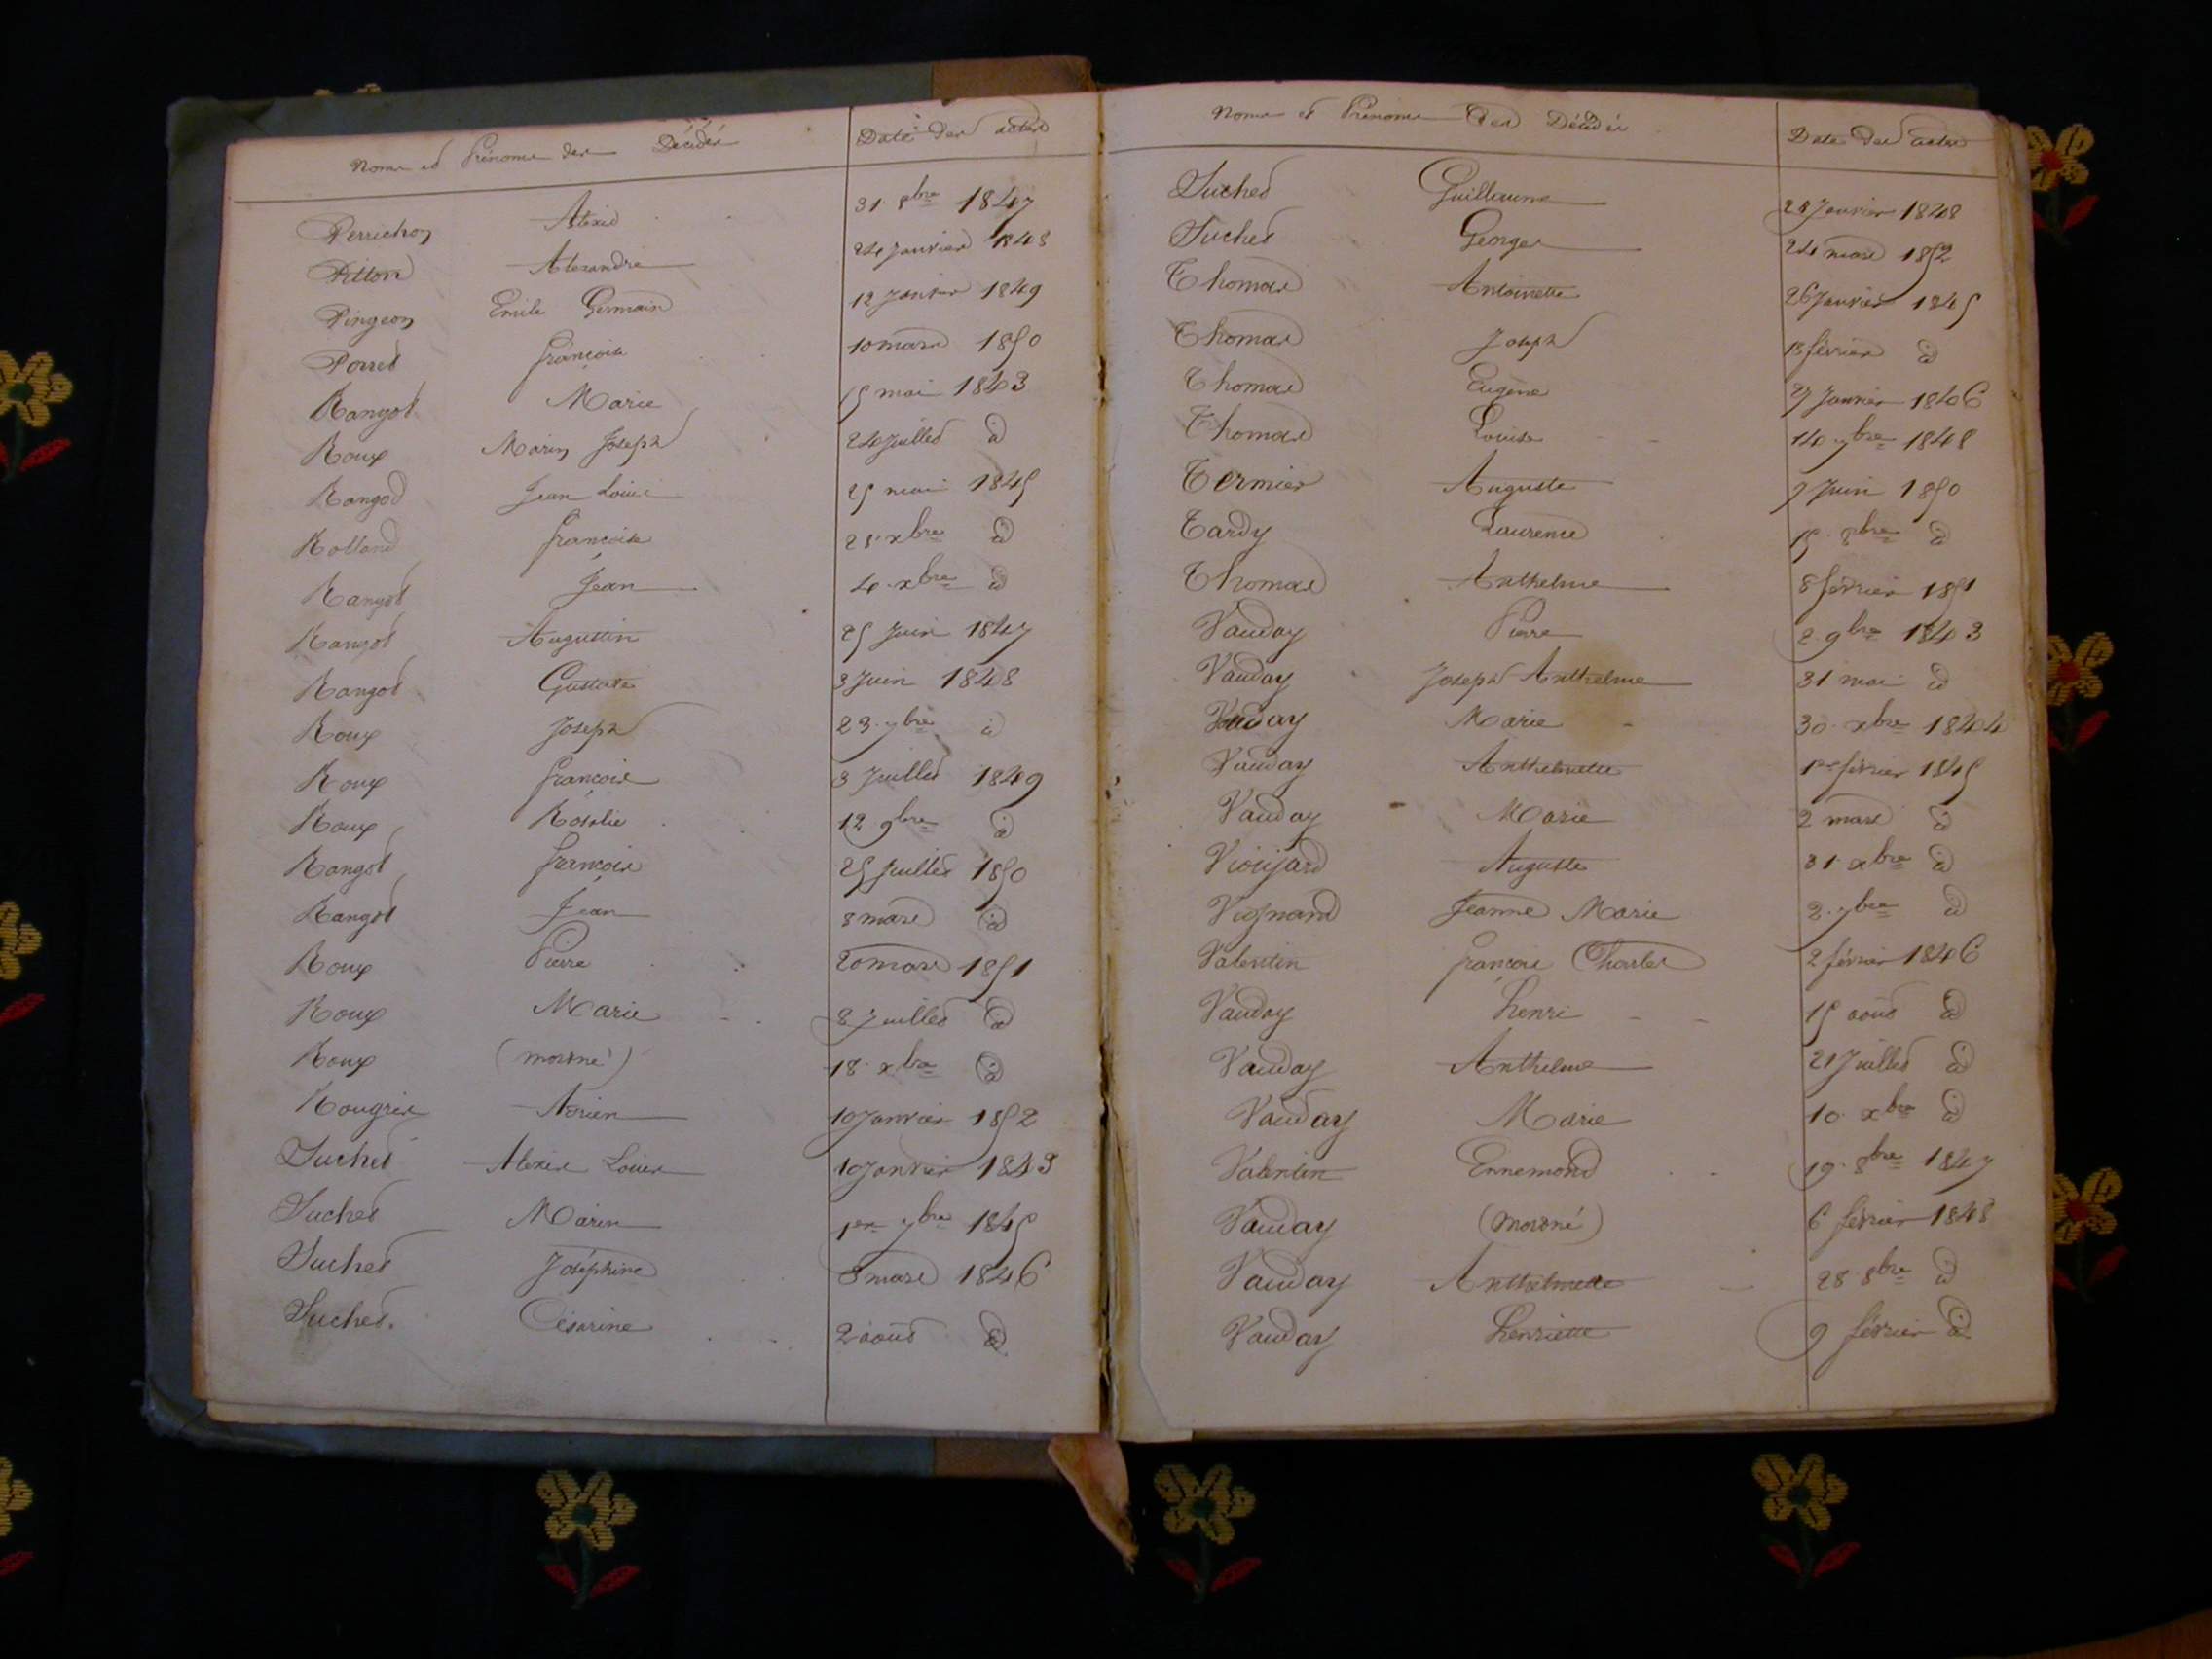 Noms et Prénoms des Décédés Date des actes
Perrichon Alexis 31 8bre 1847
Pitton Alexandre 24 Janvier 1848
Pingeon Emile Germain 12 Janvier 1849
Porret françoise 10 mars 1850
Rangot Marie 15 mai 1843
Roux Marin Joseph 24 Juillet d
Rangod Jean Louis 25 mai 1845
Rolland françoise 25 xbre d
Rangot Jean 4 xbre d
Rangot Augustin 25 Juin 1847
Rangot Gustave 3 Juin 1848
Roux Joseph 23 7bre d
Roux françois 3 Juillet 1849
Roux Rosalie 12 9bre d
Rangot françois 25 Juillet 1850
Rangot Jean 8 mars d
Roux Pierre 20 mars 1851
Roux Marie 8 Juillet d
Roux (mort né) 18 xbre d
Rougrix Adrien 10 Janvier 1852
Suchet Alexis Louis 10 Janvier 1843
Suchet Marin 1er 7bre 1845
Suchet Joséphine 8 mars 1846
Suchet Césarine 2 août d
Noms et Prénoms des Décédés Date des actes
Suchet Guillaume 28 Janvier 1848
Suchet Georges 24 mars 1852
Thomas Antoinette 26 Janvier 1845
Thomas Joseph 13 février d
Thomas Eugène 27 Janvier 1846
Thomas Louise 14 7bre 1848
Termier Auguste 7 Juin 1850
Tardy Laurence 15 8bre d
Thomas Anthelme 8 février 1851
Vauday Pierre 2 9bre 1843
Vauday Joseph Anthelme 31 mai d
Vauday Marie 30 xbre 1844
Vauday Anthelmette 1er février 1845
Vauday Marie 2 mars d
Vioujard Auguste 31 xbre d
Vignand Jeanne Marie 2 7bre d
Valentin françois Charles 2 février 1846
Vauday henri 15 août d
Vauday Anthelme 21 Juillet d
Vauday Marie 10 xbre d
Valentin Ennemond 19 8bre 1847
Vauday (mort né) 6 février 1848
Vauday Anthelmette 28 8bre d
Vauday henriette 9 février d